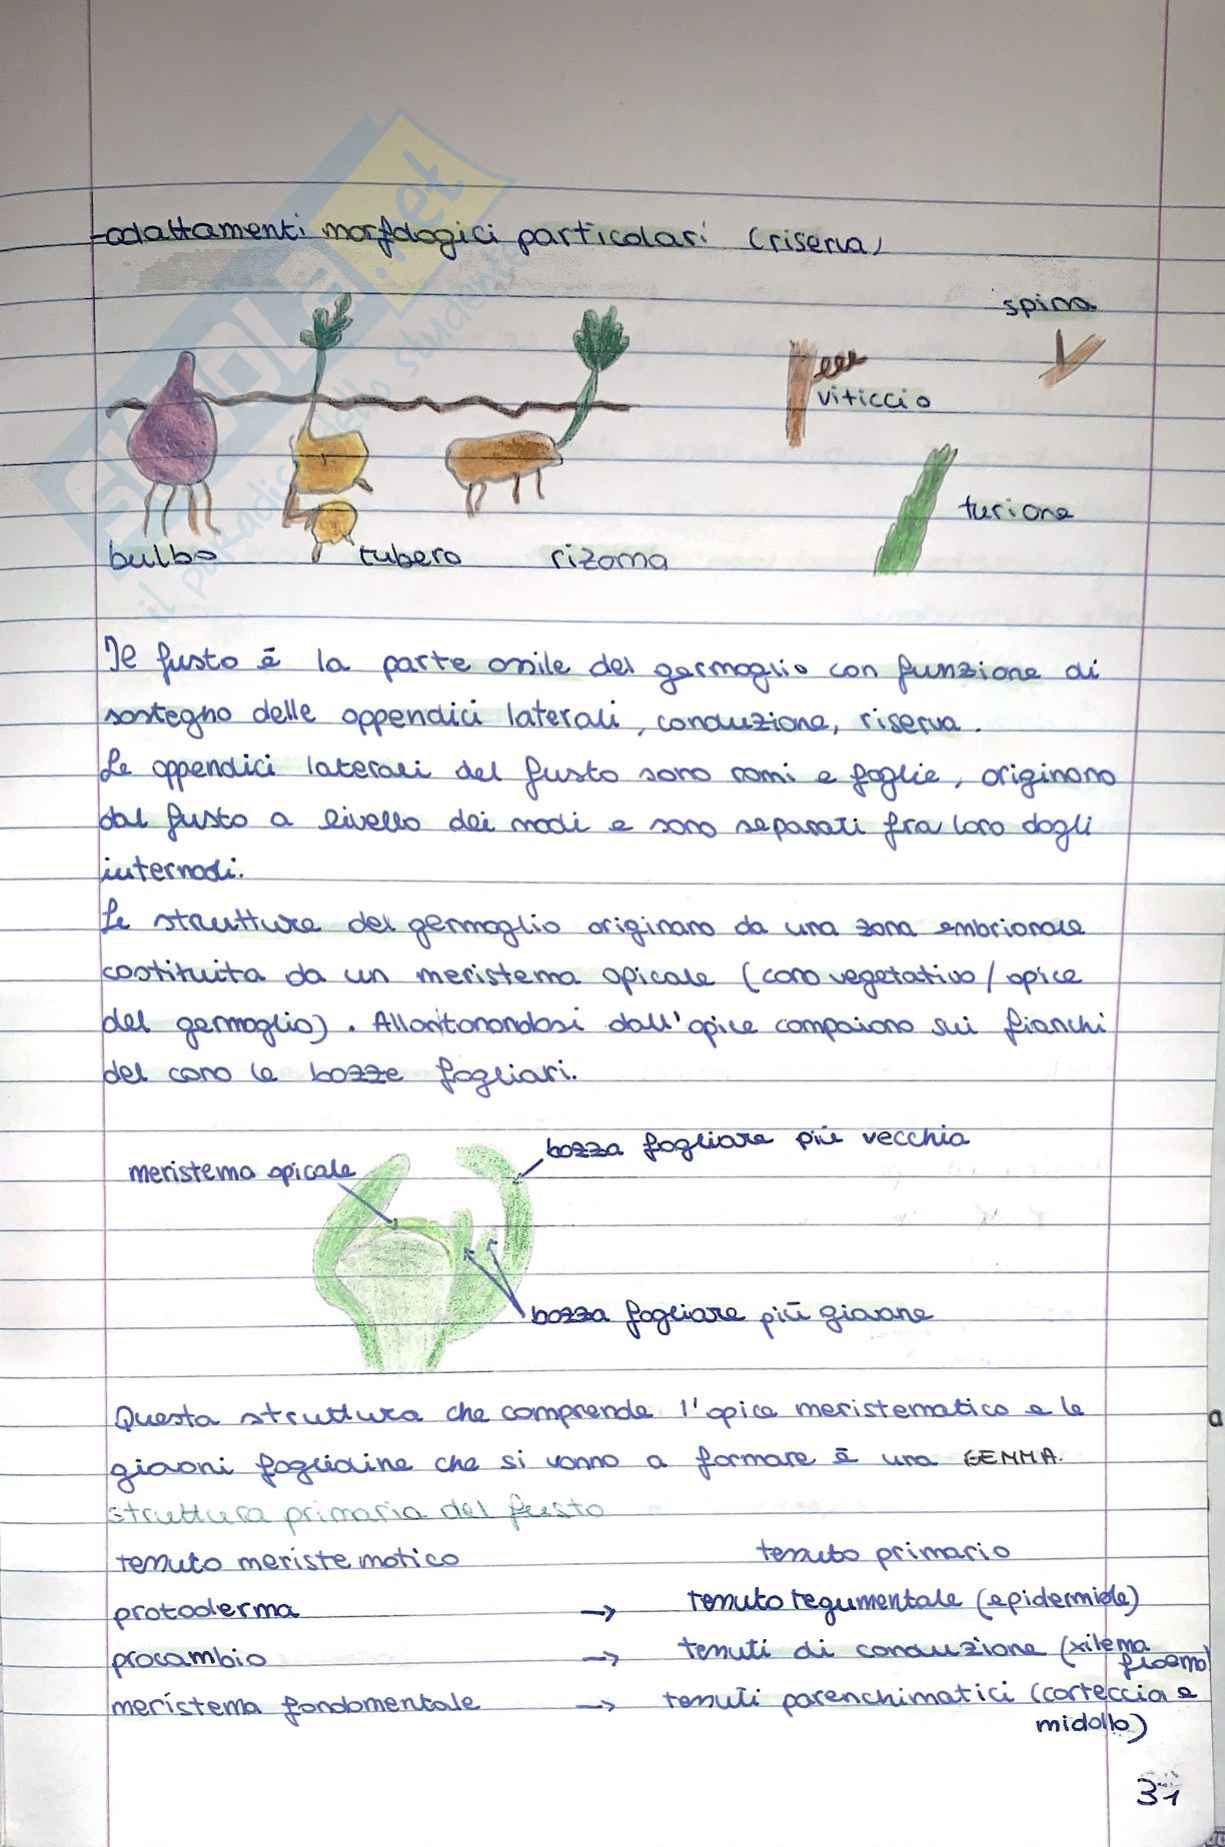 -adattamenti morfologici particolari (riserva)
spina
viticcio
turione
bulbo tubero rizoma
Il fusto è la parte assile del germoglio con funzione di
sostegno delle appendici laterali, conduzione, riserva.
Le appendici laterali del fusto sono rami e foglie, originano
dal fusto a livello dei nodi e sono separati fra loro dagli
internodi.
Le strutture del germoglio originano da una zona embrionale
costituita da un meristema apicale (cono vegetativo/apice
del germoglio). Allontanandosi dall'apice compaiono sui fianchi
del cono le bozze fogliari.
bozza fogliare più vecchia
meristema apicale
bozza fogliare più giovane
Questa struttura che comprende l'apice meristematico e le
giovani foglioline che si vanno a formare è una GEMMA.
struttura primaria del fusto
tessuto meristematico tessuto primario
protoderma → tessuto tegumentale (epidermide)
procambio → tessuti di conduzione (xilema
floema)
meristema fondamentale → tessuti parenchimatici (corteccia e
midollo)
31
SKUOLA.net
il paradiso dello studente